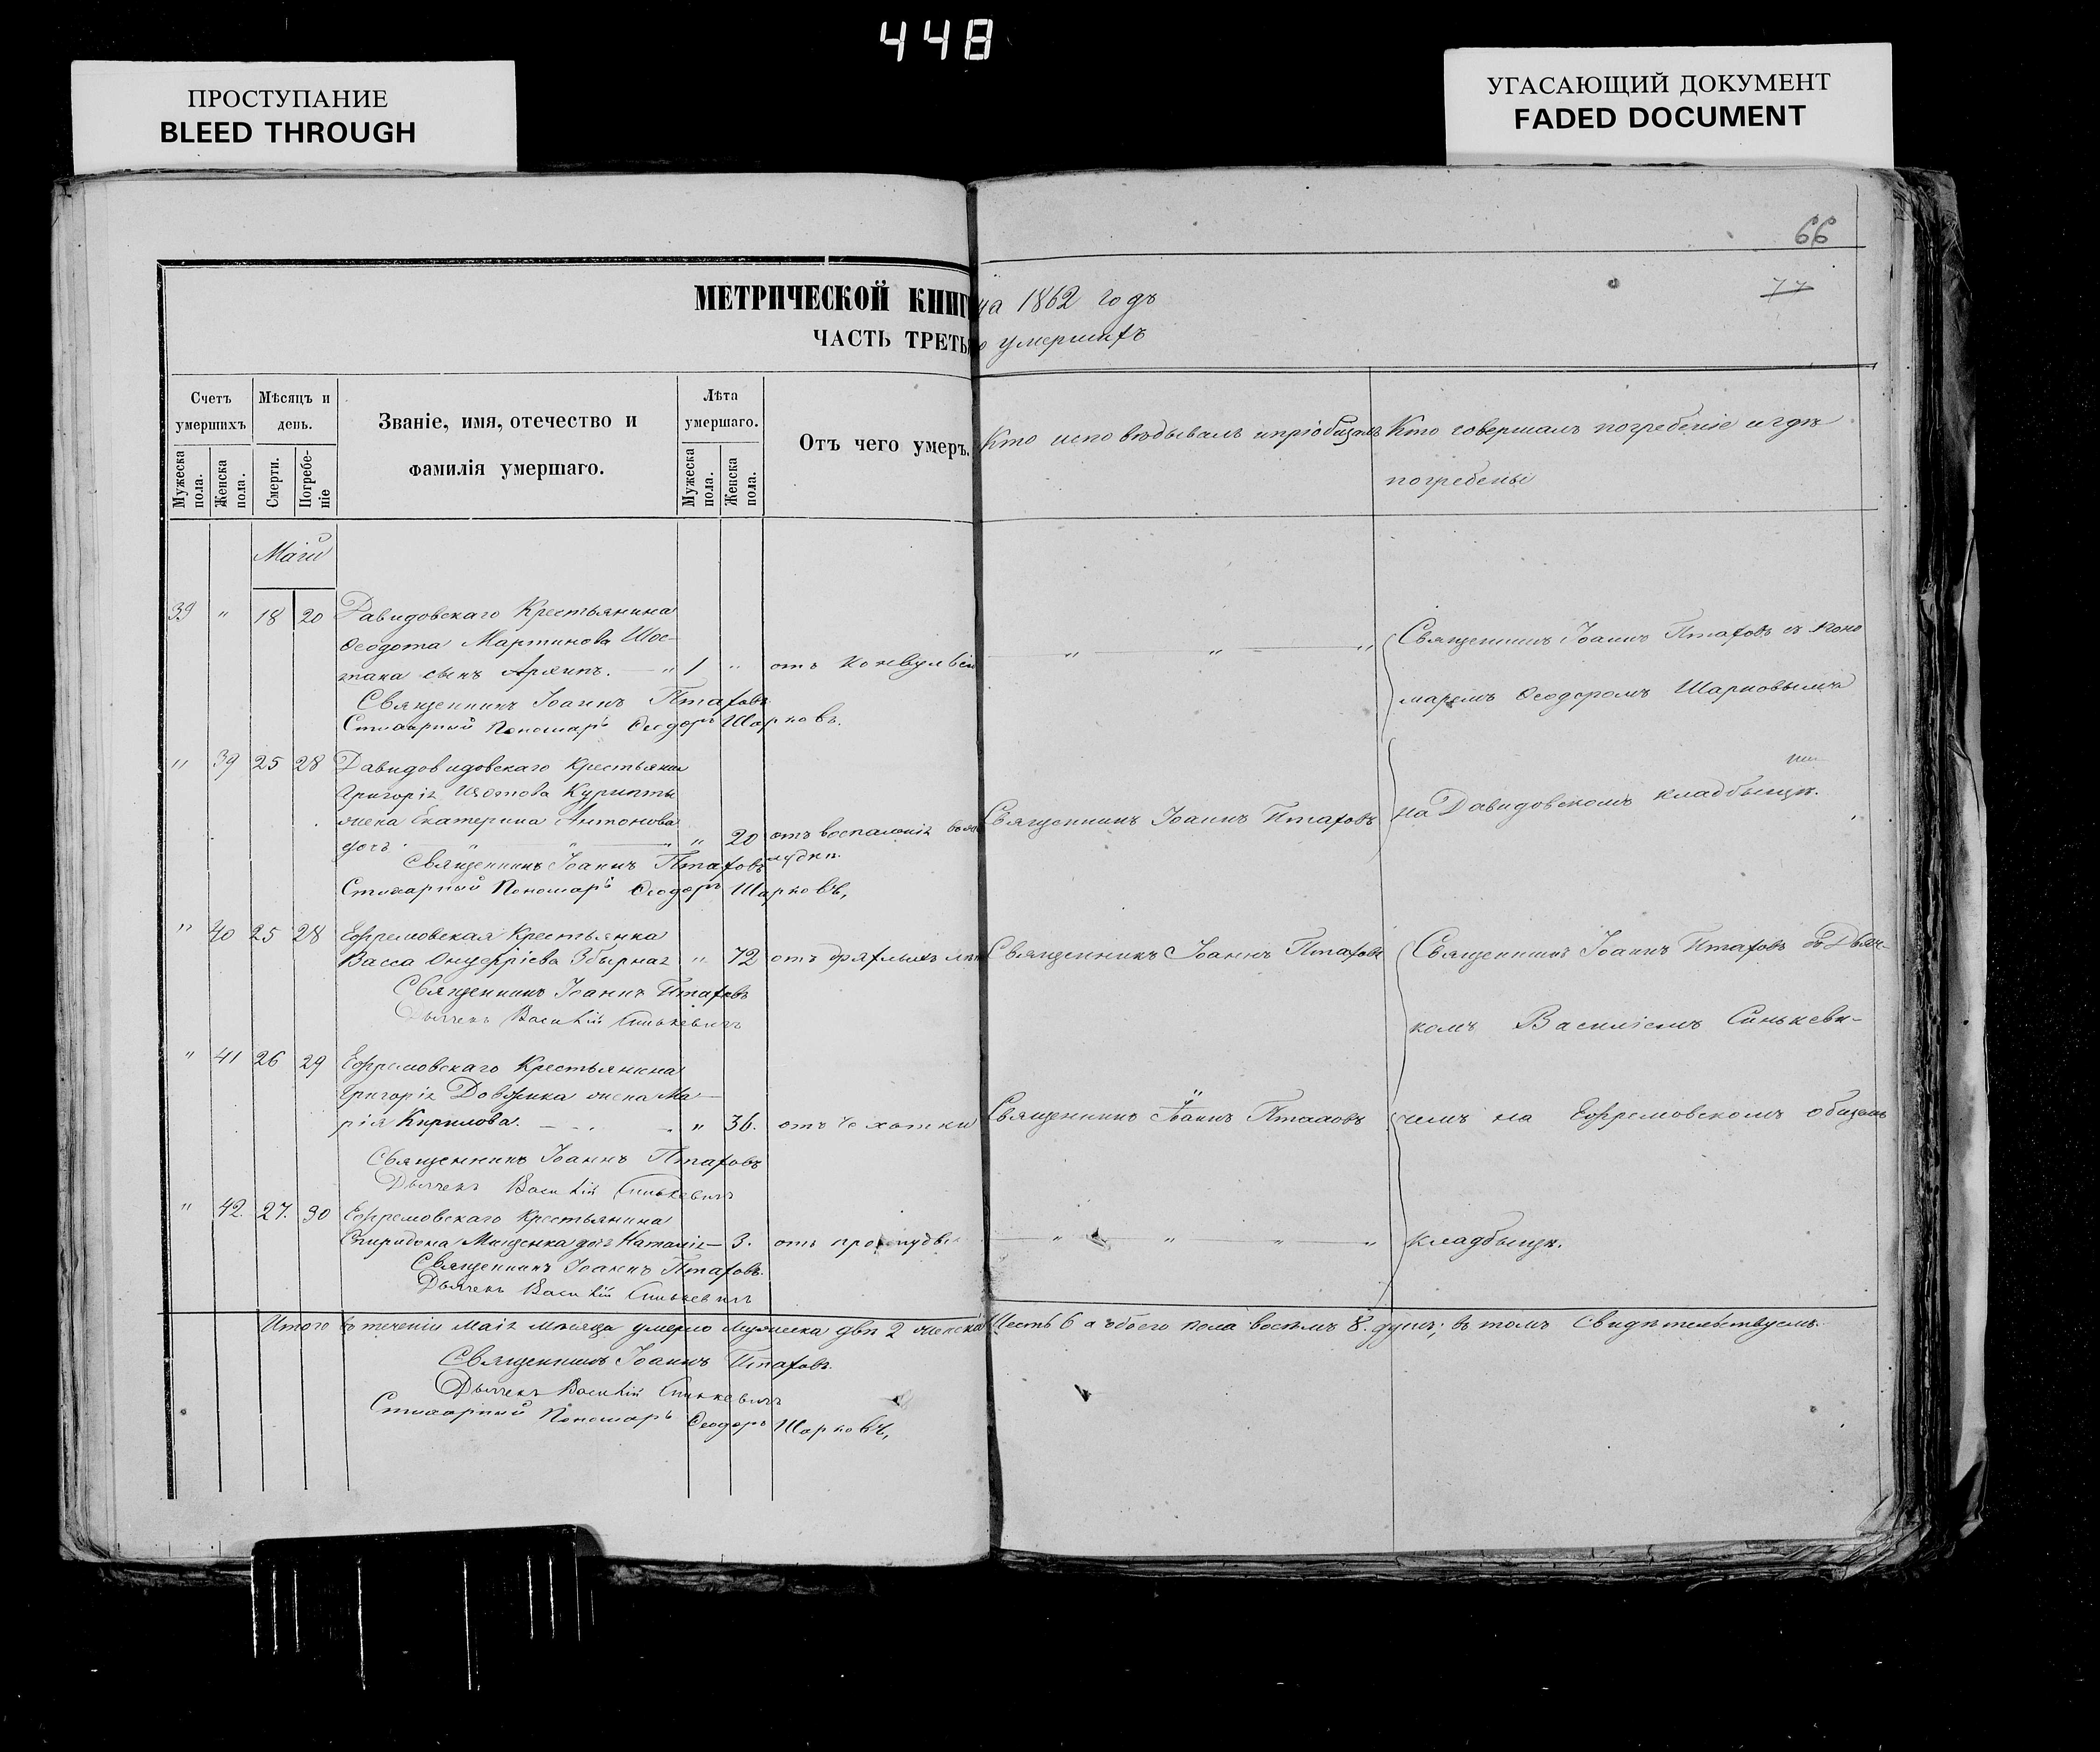 448
ПРОСТУПАНИЕ
BLEED THROUGH
УГАСАЮЩИЙ ДОКУМЕНТ
FADED DOCUMENT
66
77
МЕТРИЧЕСКОЙ КНИГ на 1862 годъ
ЧАСТЬ ТРЕТЬ о умершихъ
Счетъ умершихъ
Мѣсяцъ и день.
Званіе, имя, отечество и фамилія умершаго.
Лѣта умершаго.
Отъ чего умеръ.
Кто исповѣдывалъ и пріобщалъ
Кто совершалъ погребеніе и гдѣ
погребены
Мужеска пола.
Женска пола.
Смерти.
Погребеніе
Мужеска пола.
Женска пола.
Маій
39 " 18 20 Давидовскаго Крестьянина
Ѳеодота Мартинова Шос-
така сынъ Архипъ. — " 1 " отъ конвульсіи — " " — "
Священникъ Іоаннъ Птаховъ
Стихарный Пономарь Ѳеодоръ Шарковъ.
Священникъ Іоаннъ Птаховъ съ Поно
маремъ Ѳеодоромъ Шарковымъ
на Давидовскомъ кладбыщѣ.
" 39 25 28 Давидовидовскаго Крестьянин
Григорія Изотова Курипты
жена Екатерина Антонова
дочь " " — " 20 отъ воспаленія
лудки
Священникъ Іоаннъ Птаховъ
Священникъ Іоаннъ Птаховъ
Стихарный Пономарь Ѳеодоръ Шарковъ,
" 40 25 28 Ефремовская Крестьянка
Васса Онуфріева Збырная " 72 отъ дряхлыхъ лѣт Священникъ Іоаннъ Птаховъ
Священникъ Іоаннъ Птаховъ
Дьячекъ Василій Синькевичъ
Священникъ Іоаннъ Птаховъ съ Дьяч-
комъ Василіемъ Синькеви-
чемъ на Ефремовскомъ общемъ
кладбыщѣ.
" 41 26 29 Ефремовскаго Крестьянина
Григорія Довжика жена Ма-
рія Кирилова. — " 36. отъ чахотки Священникъ Іоаннъ Птаховъ
Священникъ Іоаннъ Птаховъ
Дьячекъ Василій Синькевичъ
" 42. 27. 30 Ефремовскаго Крестьянина
Спиридона Мищенка дочь Наталія — 3. отъ — " " " "
Священникъ Іоаннъ Птаховъ.
Дьячекъ Василій Синькевичъ
Итого въ теченіи Маія мѣсяца умерло мужеска два 2 женска Шесть 6 а обоего пола восѣмъ 8. душъ; въ томъ Свидѣтельствуемъ.
Священникъ Іоаннъ Птаховъ.
Дьячекъ Василій Синькевичъ
Стихарный Пономарь Ѳеодоръ Шарковъ,